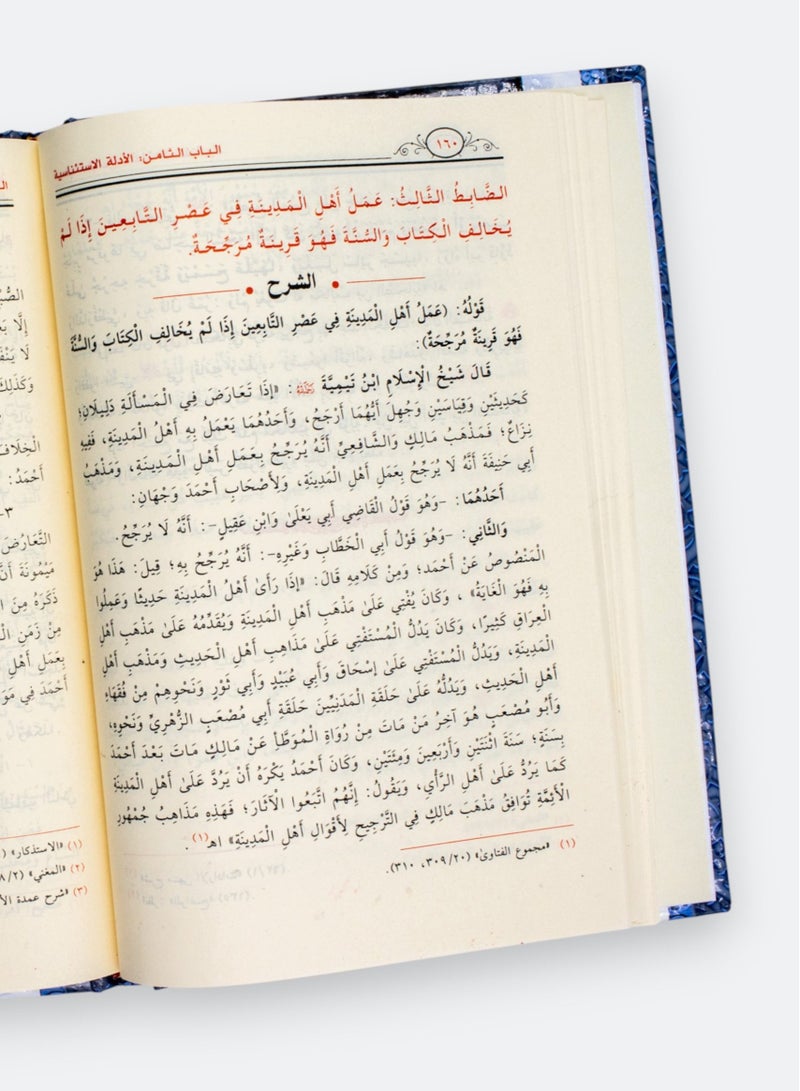 ١٦٠
الباب الثامن: الأدلة الاستئناسية
الضَّابِطُ الثَّالِثُ: عَمَلُ أَهْلِ الْمَدِينَةِ فِي عَصْرِ التَّابِعِينَ إِذَا لَمْ
يُخَالِفِ الْكِتَابَ وَالسُّنَّةَ فَهُوَ قَرِينَةٌ مُرَجِّحَةٌ.
الشرح
قَوْلُهُ: (عَمَلُ أَهْلِ الْمَدِينَةِ فِي عَصْرِ التَّابِعِينَ إِذَا لَمْ يُخَالِفِ الْكِتَابَ وَالسُّنَّةَ
فَهُوَ قَرِينَةٌ مُرَجِّحَةٌ):
قَالَ شَيْخُ الْإِسْلَامِ ابْنُ تَيْمِيَّةَ رَحِمَهُ اللهُ: «إِذَا تَعَارَضَ فِي الْمَسْأَلَةِ دَلِيلَانِ؛
كَحَدِيثَيْنِ وَقِيَاسَيْنِ وَجُهِلَ أَيُّهُمَا أَرْجَحُ، وَأَحَدُهُمَا يَعْمَلُ بِهِ أَهْلُ الْمَدِينَةِ، فَفِيهِ
نِزَاعٌ؛ فَمَذْهَبُ مَالِكٍ وَالشَّافِعِيِّ أَنَّهُ يُرَجِّحُ بِعَمَلِ أَهْلِ الْمَدِينَةِ، وَمَذْهَبُ
أَبِي حَنِيفَةَ أَنَّهُ لَا يُرَجِّحُ بِعَمَلِ أَهْلِ الْمَدِينَةِ، وَلِأَصْحَابِ أَحْمَدَ وَجْهَانِ:
أَحَدُهُمَا: -وَهُوَ قَوْلُ الْقَاضِي أَبِي يَعْلَىٰ وَابْنِ عَقِيلٍ-: أَنَّهُ لَا يُرَجِّحُ.
وَالثَّانِي: -وَهُوَ قَوْلُ أَبِي الْخَطَّابِ وَغَيْرِهِ-: أَنَّهُ يُرَجِّحُ بِهِ؛ قِيلَ: هَذَا هُوَ
الْمَنْصُوصُ عَنْ أَحْمَدَ؛ وَمِنْ كَلَامِهِ قَالَ: «إِذَا رَأَىٰ أَهْلُ الْمَدِينَةِ حَدِيثًا وَعَمِلُوا
بِهِ فَهُوَ الْغَايَةُ» ، وَكَانَ يُفْتِي عَلَىٰ مَذْهَبِ أَهْلِ الْمَدِينَةِ وَيُقَدِّمُهُ عَلَىٰ مَذْهَبِ أَهْلِ
الْعِرَاقِ كَثِيرًا، وَكَانَ يَدُلُّ الْمُسْتَفْتِي عَلَىٰ مَذَاهِبِ أَهْلِ الْحَدِيثِ وَمَذْهَبِ أَهْلِ
الْمَدِينَةِ، وَيَدُلُّ الْمُسْتَفْتِي عَلَىٰ إِسْحَاقَ وَأَبِي عُبَيْدٍ وَأَبِي ثَوْرٍ وَنَحْوِهِمْ مِنْ فُقَهَاءِ
أَهْلِ الْحَدِيثِ، وَيَدُلُّهُ عَلَىٰ حَلَقَةِ الْمَدَنِيِّينَ حَلَقَةِ أَبِي مُصْعَبٍ الزُّهْرِيِّ وَنَحْوِهِ،
وَأَبُو مُصْعَبٍ هُوَ آخِرُ مَنْ مَاتَ مِنْ رُوَاةِ الْمُوَطَّأِ عَنْ مَالِكٍ مَاتَ بَعْدَ أَحْمَدَ
بِسَنَةٍ؛ سَنَةَ اثْنَتَيْنِ وَأَرْبَعِينَ وَمِئَتَيْنِ، وَكَانَ أَحْمَدُ يَكْرَهُ أَنْ يَرُدَّ عَلَىٰ أَهْلِ الْمَدِينَةِ
كَمَا يَرُدُّ عَلَىٰ أَهْلِ الرَّأْيِ، وَيَقُولُ: إِنَّهُمُ اتَّبَعُوا الْآثَارَ؛ فَهَذِهِ مَذَاهِبُ جُمْهُورِ
الْأَئِمَّةِ تُوَافِقُ مَذْهَبَ مَالِكٍ فِي التَّرْجِيحِ لِأَقْوَالِ أَهْلِ الْمَدِينَةِ» اهـ(١).
(١) «مجموع الفتاوىٰ» (٢٠/ ٣٠٩، ٣١٠).
إِلَّا
وَكَذَلِكَ
أَحْمَدُ:
٣-
مَيْمُونَةَ
ذَكَرَهُ مِنَ
مِنْ زَمَنِ
بِعَمَلِ أَهْلِ
(١) «الاستذكار»
(٢) «المغني»
(٣) «شرح عمدة